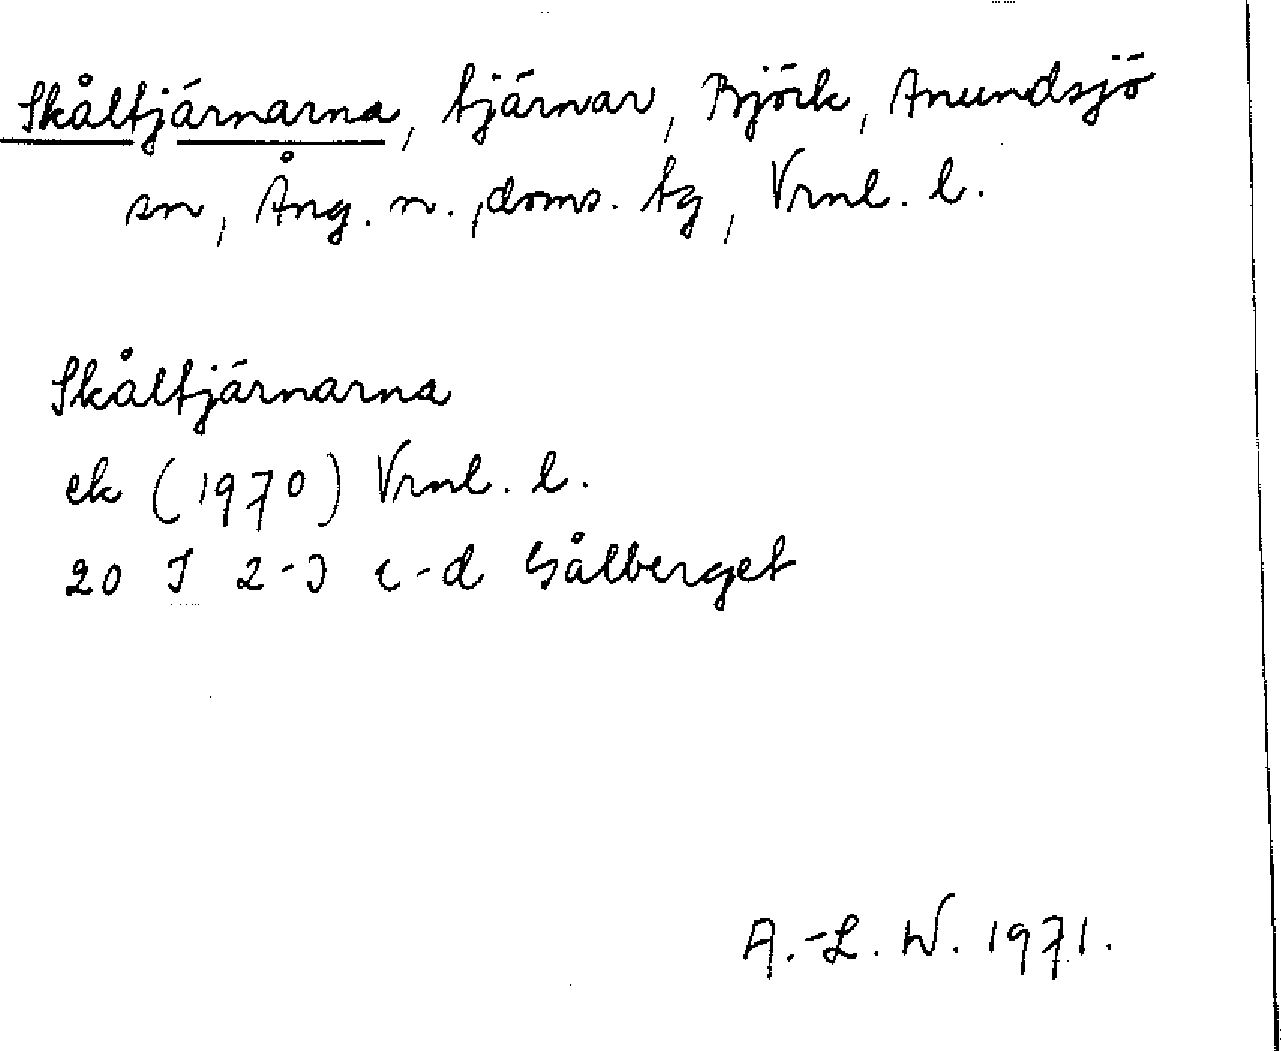 Skåltjärnarna, tjärnar, Björk, Anundsjö
sn, Ång. n. , doms. tg, Vrnl. l.
Skåltjärnarna
ek (1970) Vrnl. l.
20 J 2-3 c-d Gålberget
A.-L. W. 1971.